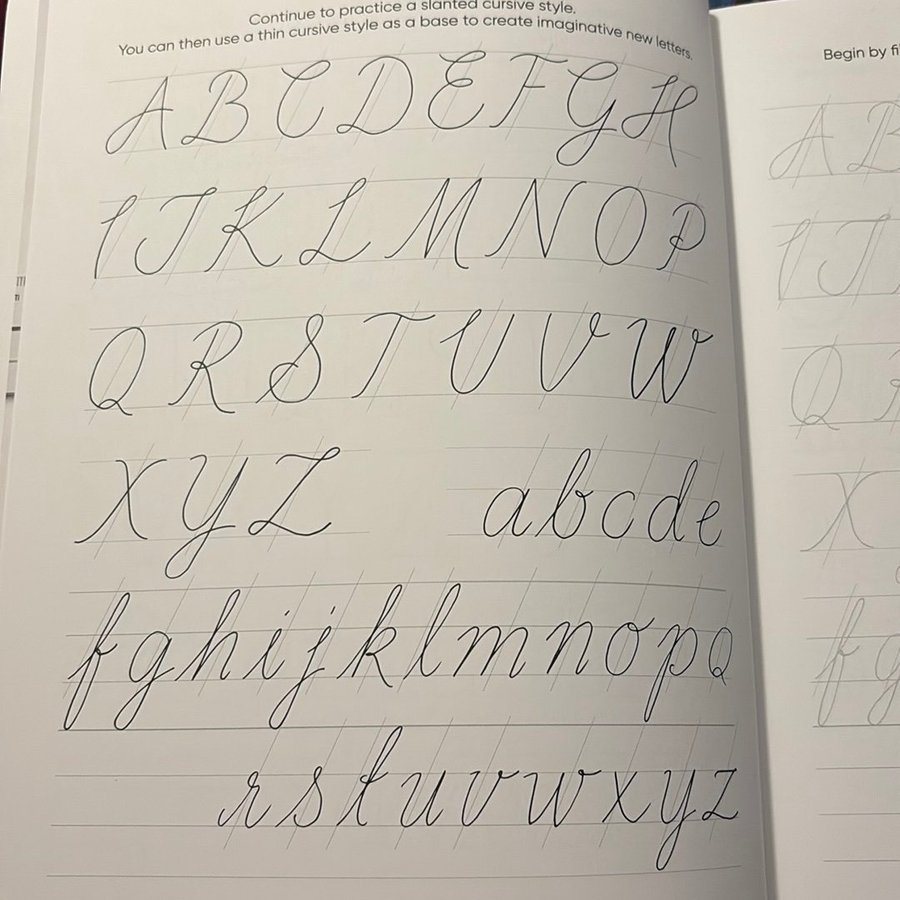 Continue to practice a slanted cursive style.
You can then use a thin cursive style as a base to create imaginative new letters.
A B C D E F G H
I J K L M N O P
Q R S T U V W
X Y Z a b c d e
f g h i j k l m n o p q
r s t u v w x y z
Begin by fi
A B
I J
Q R
X
f g